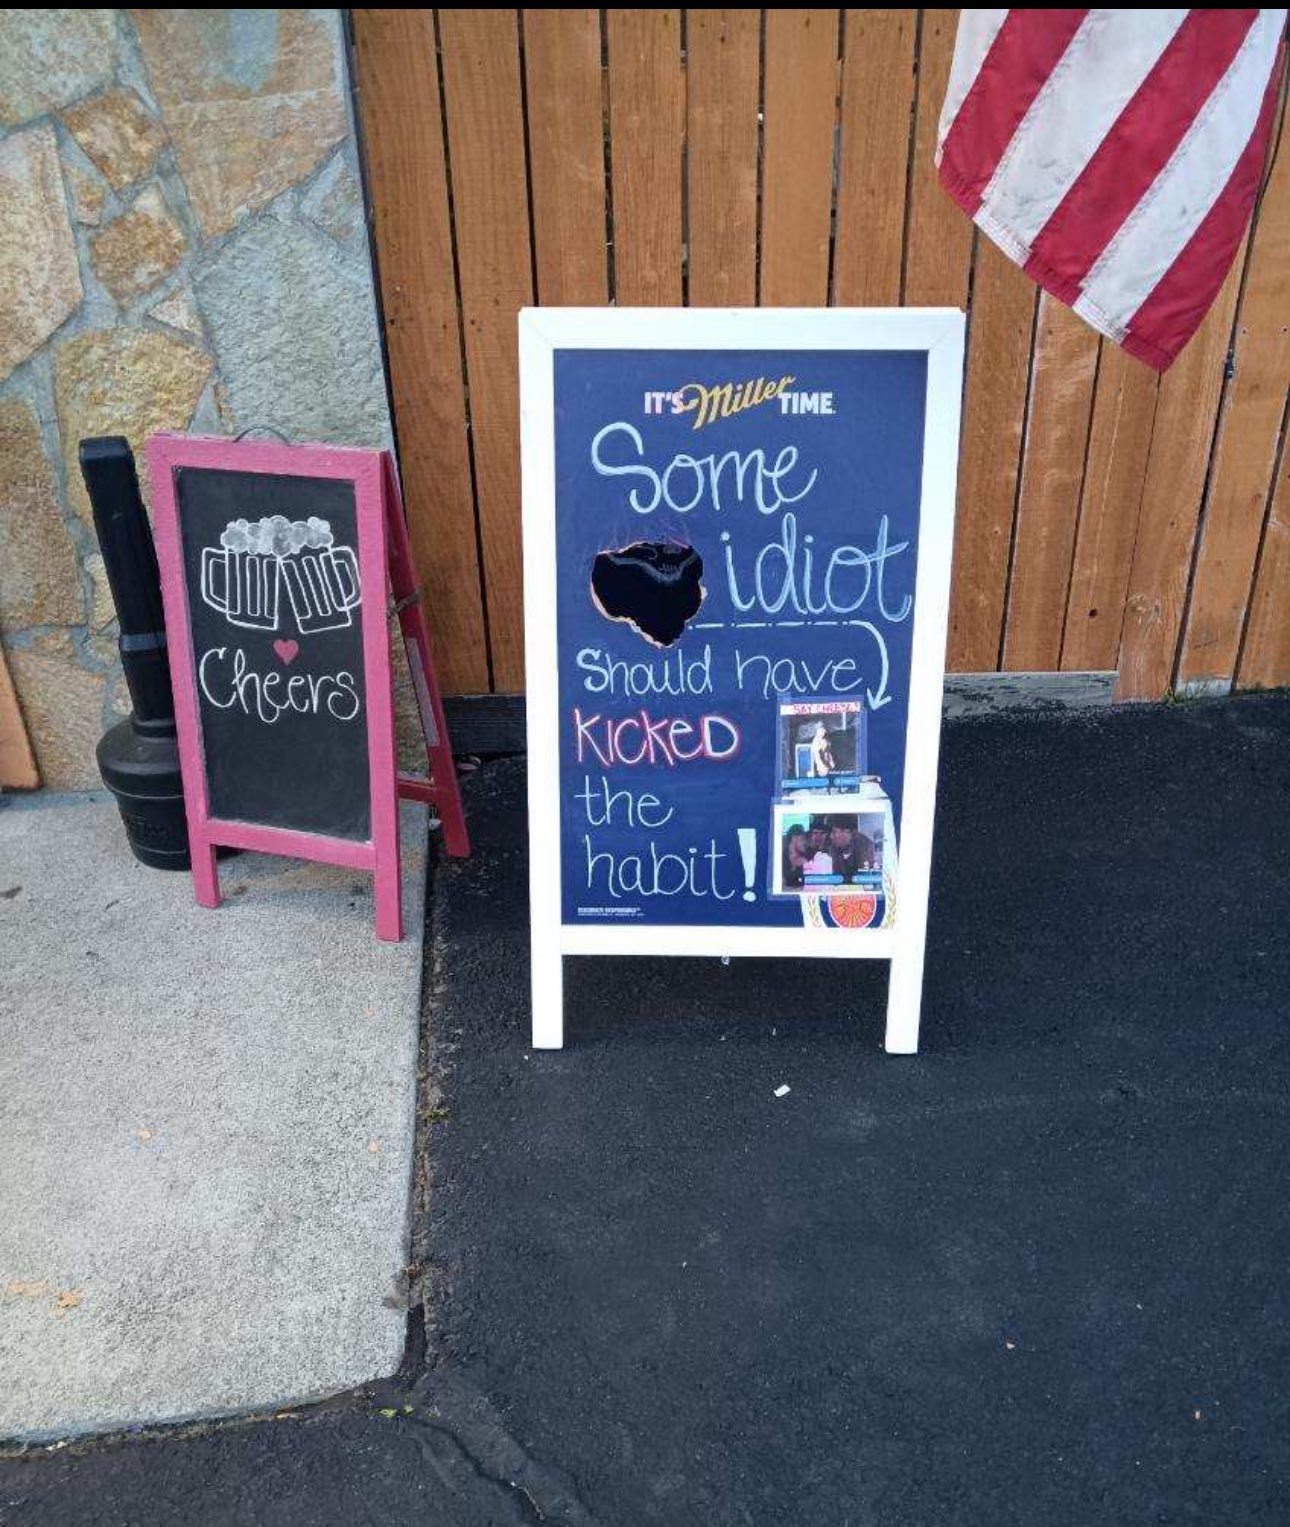 Cheers
IT'S Miller TIME
Some
idiot
Should have
KICKED
the
habit!
SAY CHEESE!